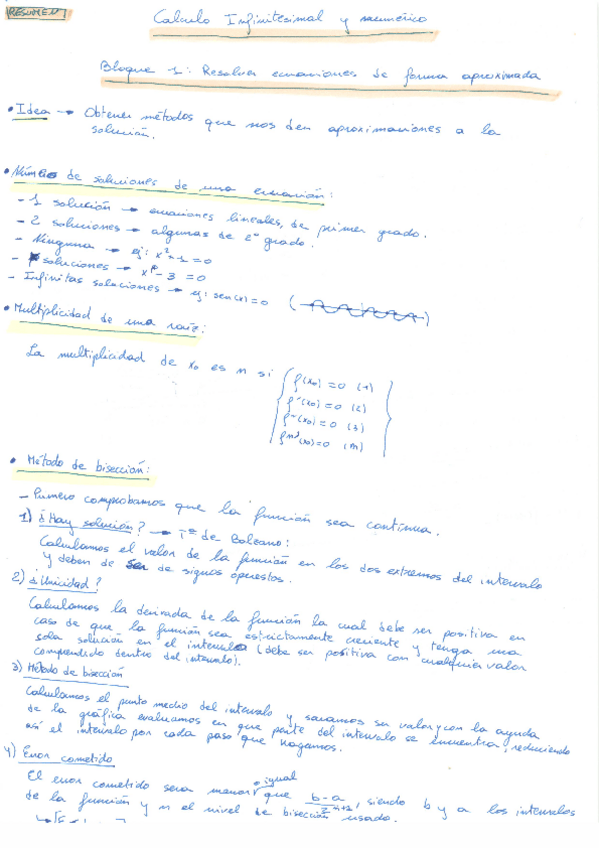 RESUMEN
Calculo Infinitesimal y numérico
Bloque 1: Resolver ecuaciones de forma aproximada
• Idea → Obtener métodos que nos den aproximaciones a la
solución.
• Número de soluciones de una ecuación:
- 1 solución → ecuaciones lineales, de primer grado.
- 2 soluciones → algunas de 2º grado.
- Ninguna → ej: x²+1=0
- p soluciones → xᵖ-3=0
- Infinitas soluciones → ej: sen(x)=0
• Multiplicidad de una raíz:
La multiplicidad de x₀ es n si
f(x₀)=0 (1)
f'(x₀)=0 (2)
f''(x₀)=0 (3)
fⁿ⁻¹(x₀)=0 (n)
• Método de bisección:
- Primero comprobamos que la función sea continua.
1) ¿Hay solución? → Tª de Bolzano:
Calculamos el valor de la función en los dos extremos del intervalo
y deben de ser de signos opuestos.
2) ¿Unicidad?
Calculamos la derivada de la función la cual debe ser positiva en
caso de que la función sea estrictamente creciente y tenga una
sola solución en el intervalo (debe ser positiva con cualquier valor
comprendido dentro del intervalo).
3) Método de bisección
Calculamos el punto medio del intervalo y sacamos su valor y con la ayuda
de la gráfica evaluamos en que parte del intervalo se encuentra, reduciendo
así el intervalo por cada paso que hagamos.
4) Error cometido
El error cometido sera menor o igual que b-a/2ⁿ⁺¹, siendo b y a los intervalos
de la función y n el nivel de bisección usado.